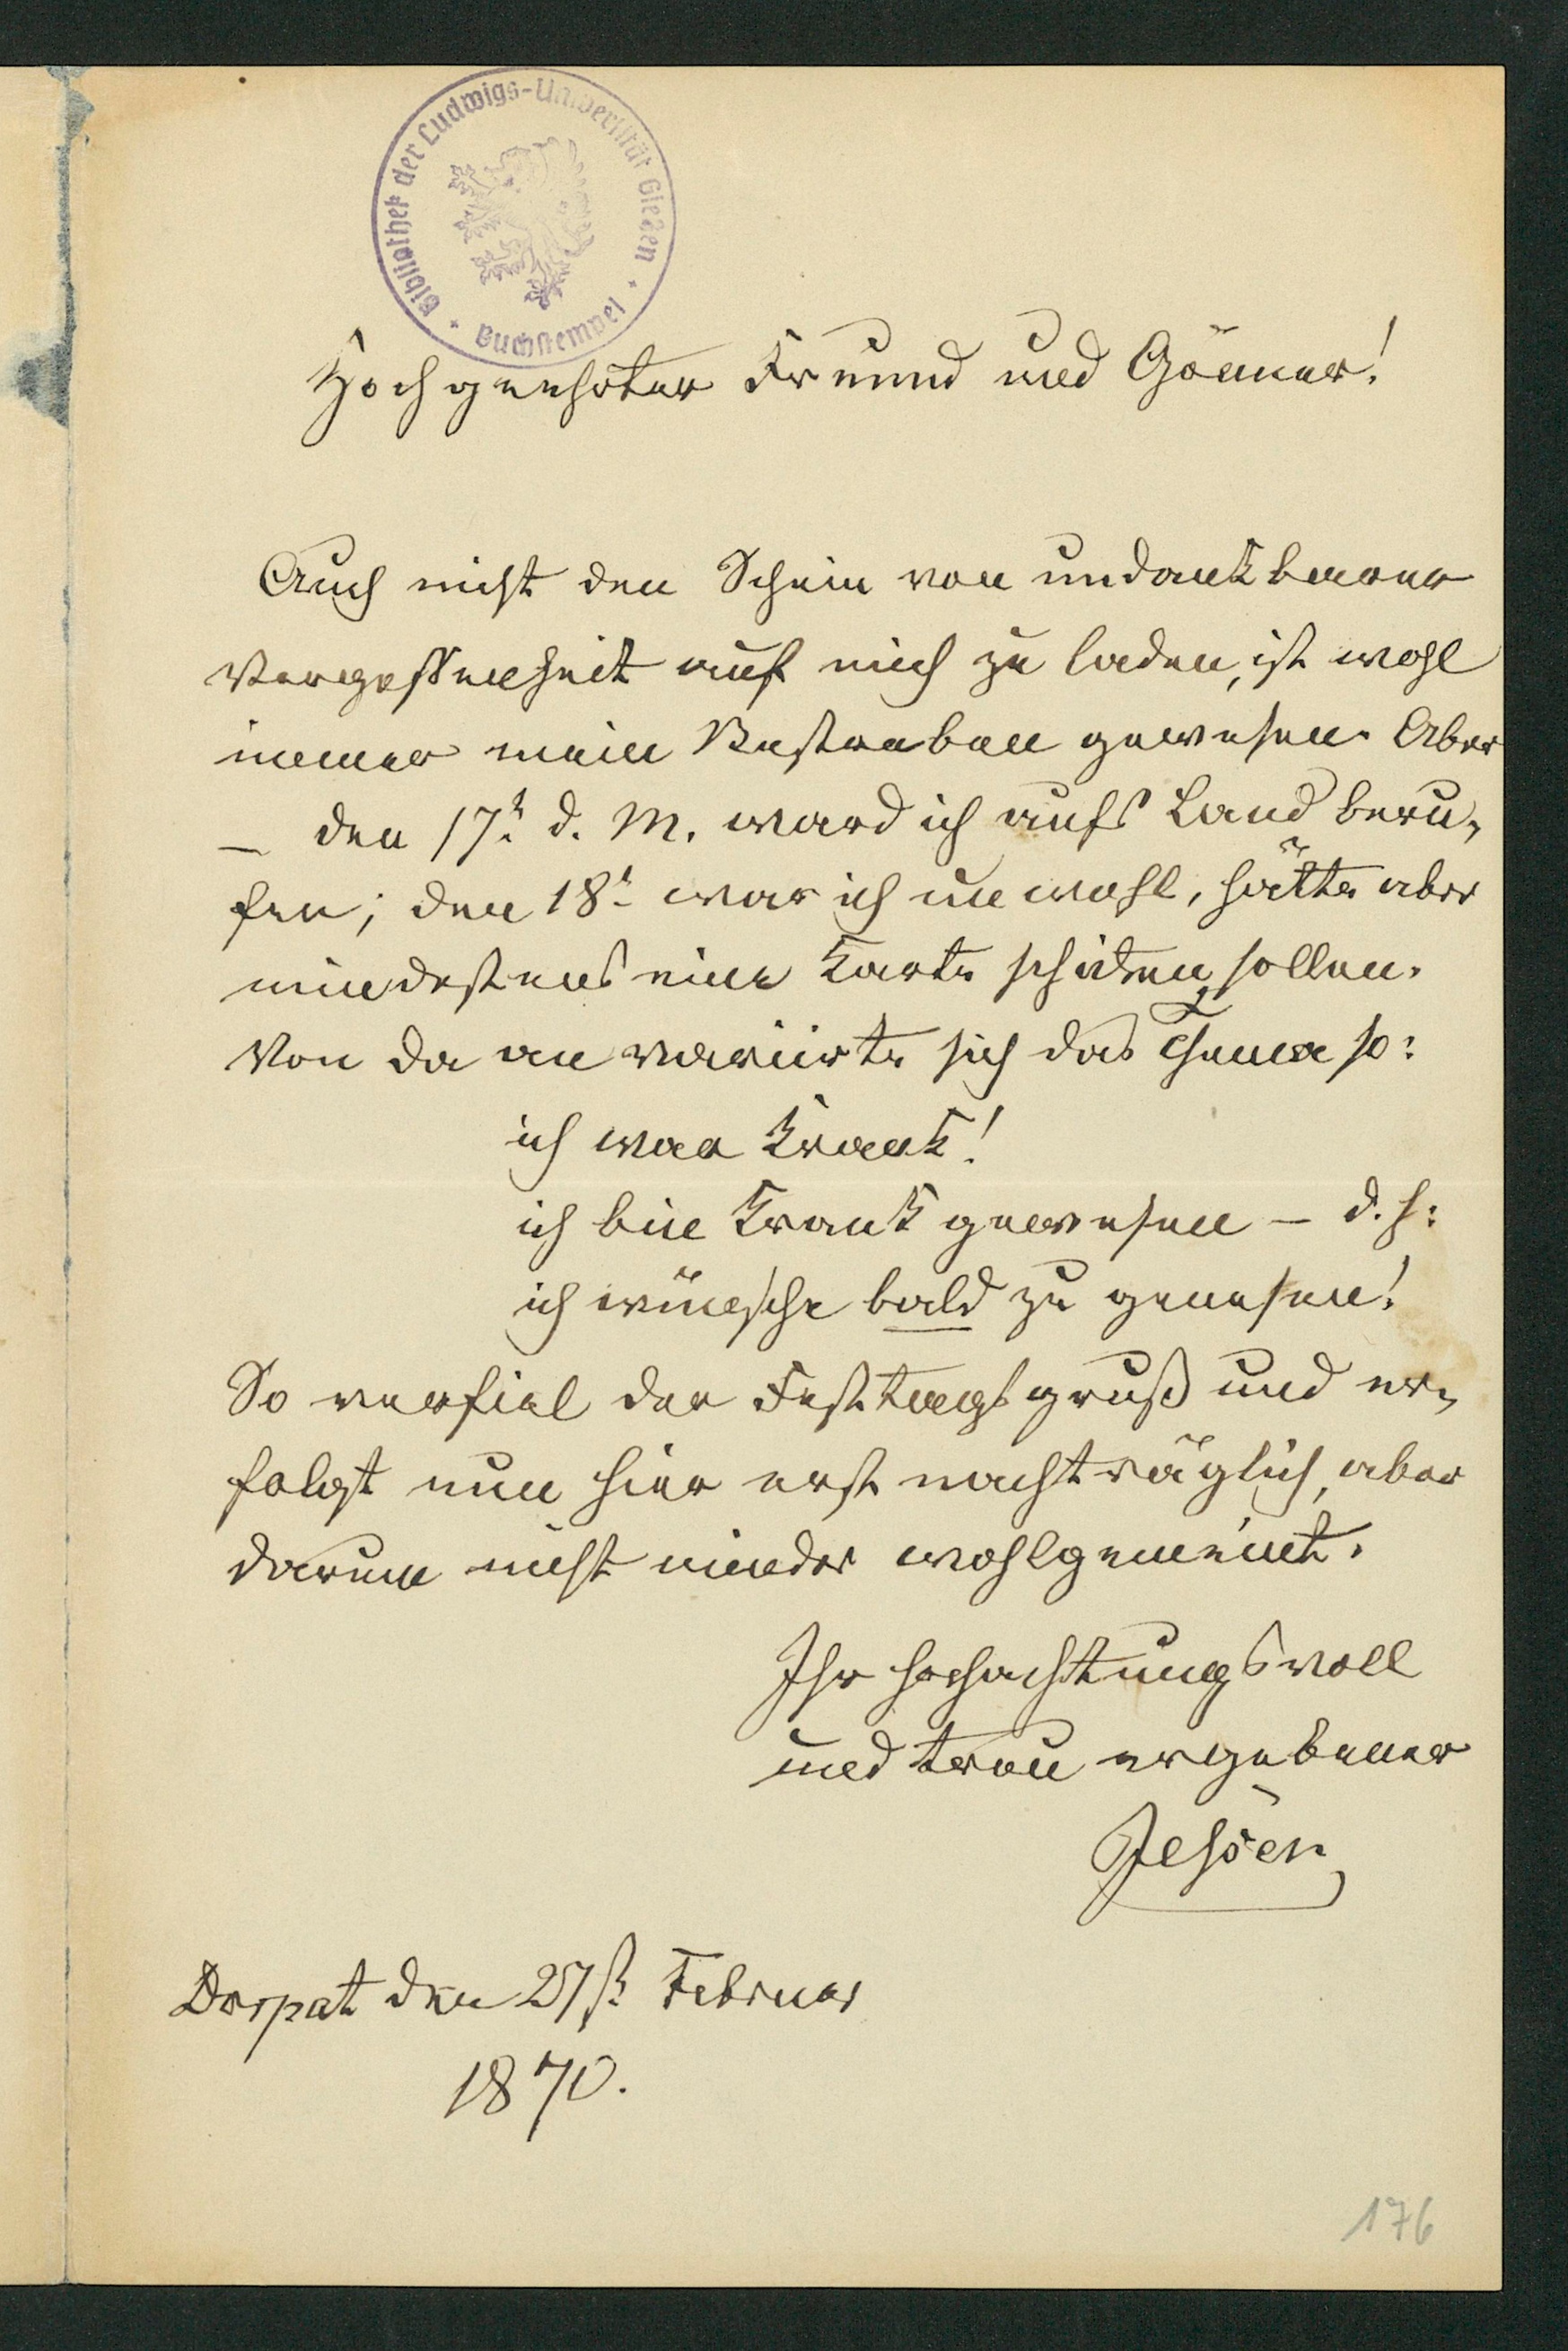 Bibliothek der Ludwigs-Universität Gießen
Buchstempel
Hochgeehrter Freund und Gönner!
Auch nicht den Schein von undankbarer
Vergessenheit auf mich zu laden, ist wohl
immer mein Bestreben gewesen. Aber
— den 17t d. M. ward ich aufs Land beru-
fen; den 18t war ich unwohl, hätte aber
mindestens eine Karte schicken sollen.
Von da an variirte sich das Thema so:
ich war krank!
ich bin krank gewesen – d. h:
ich wünsche bald zu genesen!
So verfiel der Festtagsgruß und er-
folgt nun hier erst nachträglich, aber
darum nicht minder wohlgemeint.
Ihr hochachtungsvoll
und treu ergebener
Jessen
Dorpat den Februar
1870.
176